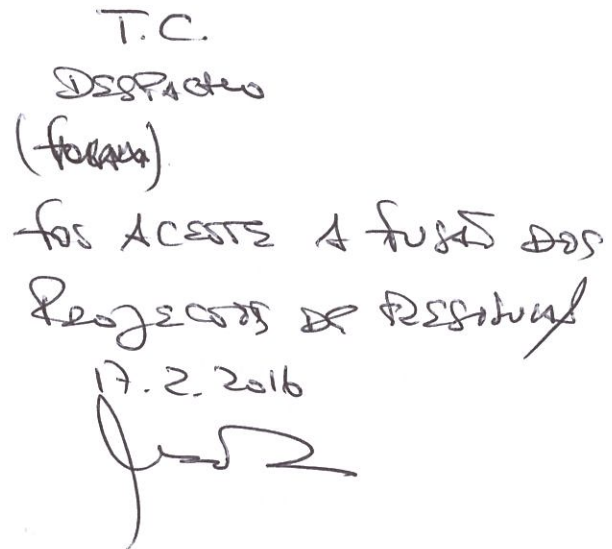 T.C.
DESPACHO
FOI ACEITE A FUSÃO DOS
PROJECTOS DE RESOLUÇÃO
17.2.2016